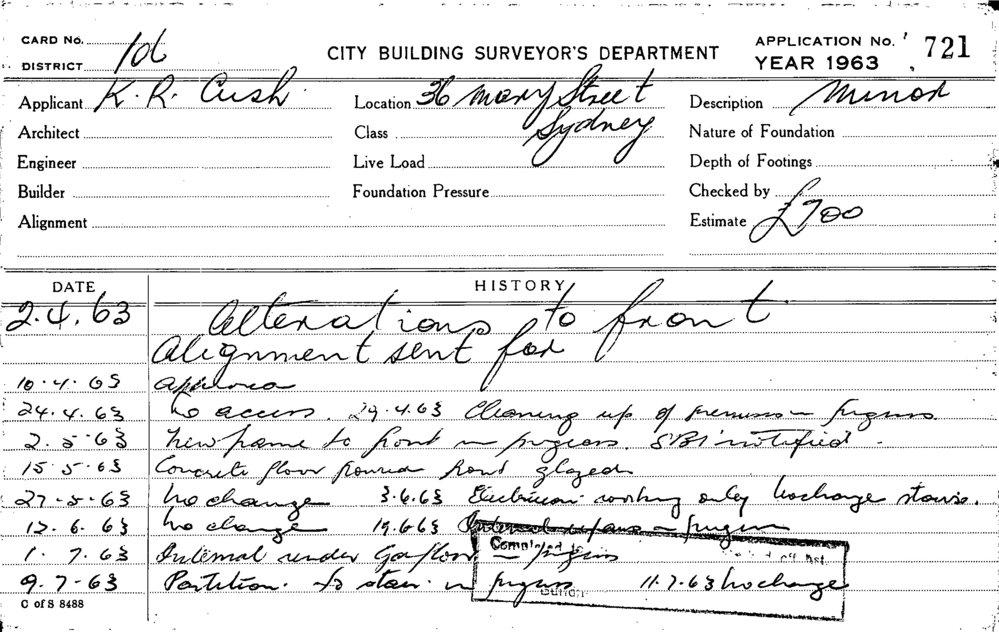 CARD No.
DISTRICT 106
CITY BUILDING SURVEYOR'S DEPARTMENT
APPLICATION No. 721
YEAR 1963
Applicant K. R. Cush Location 36 Mary Street Description Minor
Architect Class Sydney Nature of Foundation
Engineer Live Load Depth of Footings
Builder Foundation Pressure Checked by
Alignment Estimate £700
DATE HISTORY
2.4.63 Alterations to front
Alignment sent for
10.4.63
24.4.63 No access. 29.4.63 Cleaning up of premises in progress.
2.5.63 New frame to front in progress. SBI notified.
15.5.63 Concrete floor poured front glazed
27.5.63 No change 3.6.63 Electrician working only No change stairs.
12.6.63 No change 19.6.63 Internal repairs in progress
1.7.63 Internal render Ga floor in progress
9.7.63 Partition to stair in progress 11.7.63 No change
C of S 8488